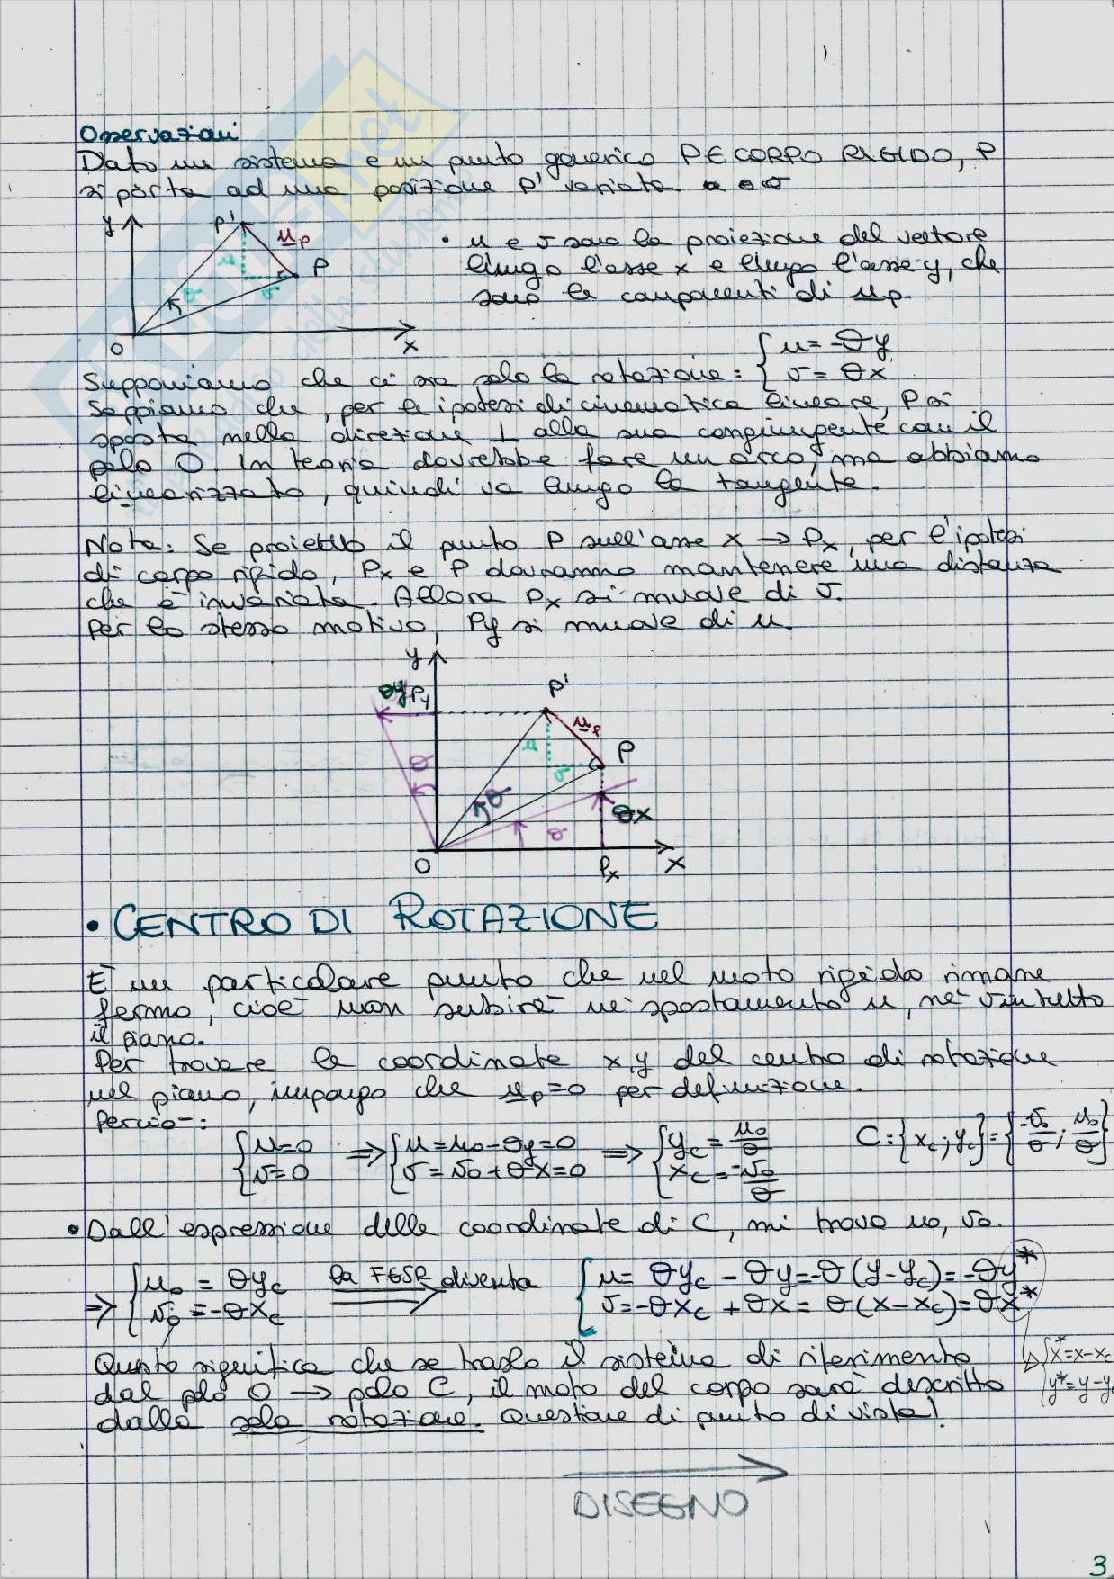 Osservazioni
Dato un sistema e un punto generico P E CORPO RIGIDO, P
si porta ad una posizione P' variata.
y P' u_p P
u v θ
O x
• u e v sono la proiezione del vettore
lungo l'asse x e lungo l'asse y, che
sono le componenti di u_p.
Supponiamo che ci sia solo la rotazione: { u = -θy
v = θx
Sappiamo che, per le ipotesi di cinematica lineare, P si
sposta nella direzione ⊥ alla sua congiungente con il
polo O. In teoria dovrebbe fare un arco, ma abbiamo
linearizzato, quindi va lungo la tangente.
Nota: Se proietto il punto P sull'asse x → Px, per l'ipotesi
di corpo rigido, Px e P dovranno mantenere una distanza
che è invariata. Allora Px si muove di v.
Per lo stesso motivo, Py si muove di u.
y
θy Py P' u_p
u P
θ v
θ θx
θ
O Px x
• CENTRO DI ROTAZIONE
È un particolare punto che nel moto rigido rimane
fermo, cioè non subirà nè spostamento u, nè v in tutto
il piano.
Per trovare le coordinate x,y del centro di rotazione
nel piano, impongo che u_p=0 per definizione.
Perciò:
{ u=0 v=0 => { u=u₀-θy=0 v=v₀+θx=0 => { y_c = u₀/θ x_c = -v₀/θ C:{x_c;y_c}={-v₀/θ; u₀/θ}
• Dall'espressione delle coordinate di C, mi trovo u₀, v₀.
=> { u₀ = θy_c v₀ = -θx_c la FGSR diventa { u= θy_c - θy=-θ(y-y_c)=-θy* v=-θx_c + θx= θ(x-x_c)=θx*
{ x*=x-x_c
y*=y-y
Questo significa che se traslo il sistema di riferimento
dal polo O → polo C, il moto del corpo sarà descritto
dalla sola rotazione. Questione di punto di vista!
DISEGNO
3